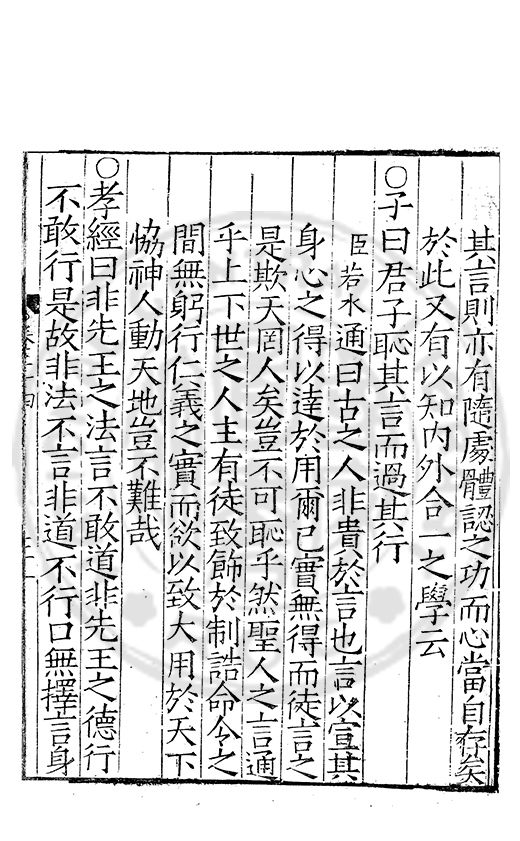 其言則亦有隨處體認之功而心當自存矣
於此又有以知内外合一之學云
○子曰君子恥其言而過其行
臣若水通曰古之人非貴於言也言以宣其
身心之得以達於用爾已實無得而徒言之
是欺天罔人矣豈不可恥乎然聖人之言通
乎上下世之人主有徒致飾於制誥命令之
間無躬行仁義之實而欲以致大用於天下
恊神人動天地豈不難哉
○孝經曰非先王之法言不敢道非先王之德行
不敢行是故非法不言非道不行口無擇言身